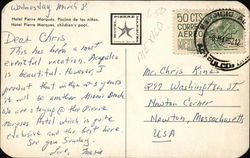 Wednesday, March 8
Hotel Pierre Marques. Piscina de los niños.
Hotel Pierre Marques, children's pool.
Dear Chris
This has been a most
eventful vacation. Acapulco
is beautiful. However, I
predict that within years
it will be another Miami Beach.
We are staying @ the Pierre
Marques Hotel which is quite
exclusive and the best here.
See you Sunday.
Love,
50 CTS
CORREO
AEREO
MEXICO
Mr. Chris Kines
Washington St.
Newton Corner
Newton, Massachusetts
USA